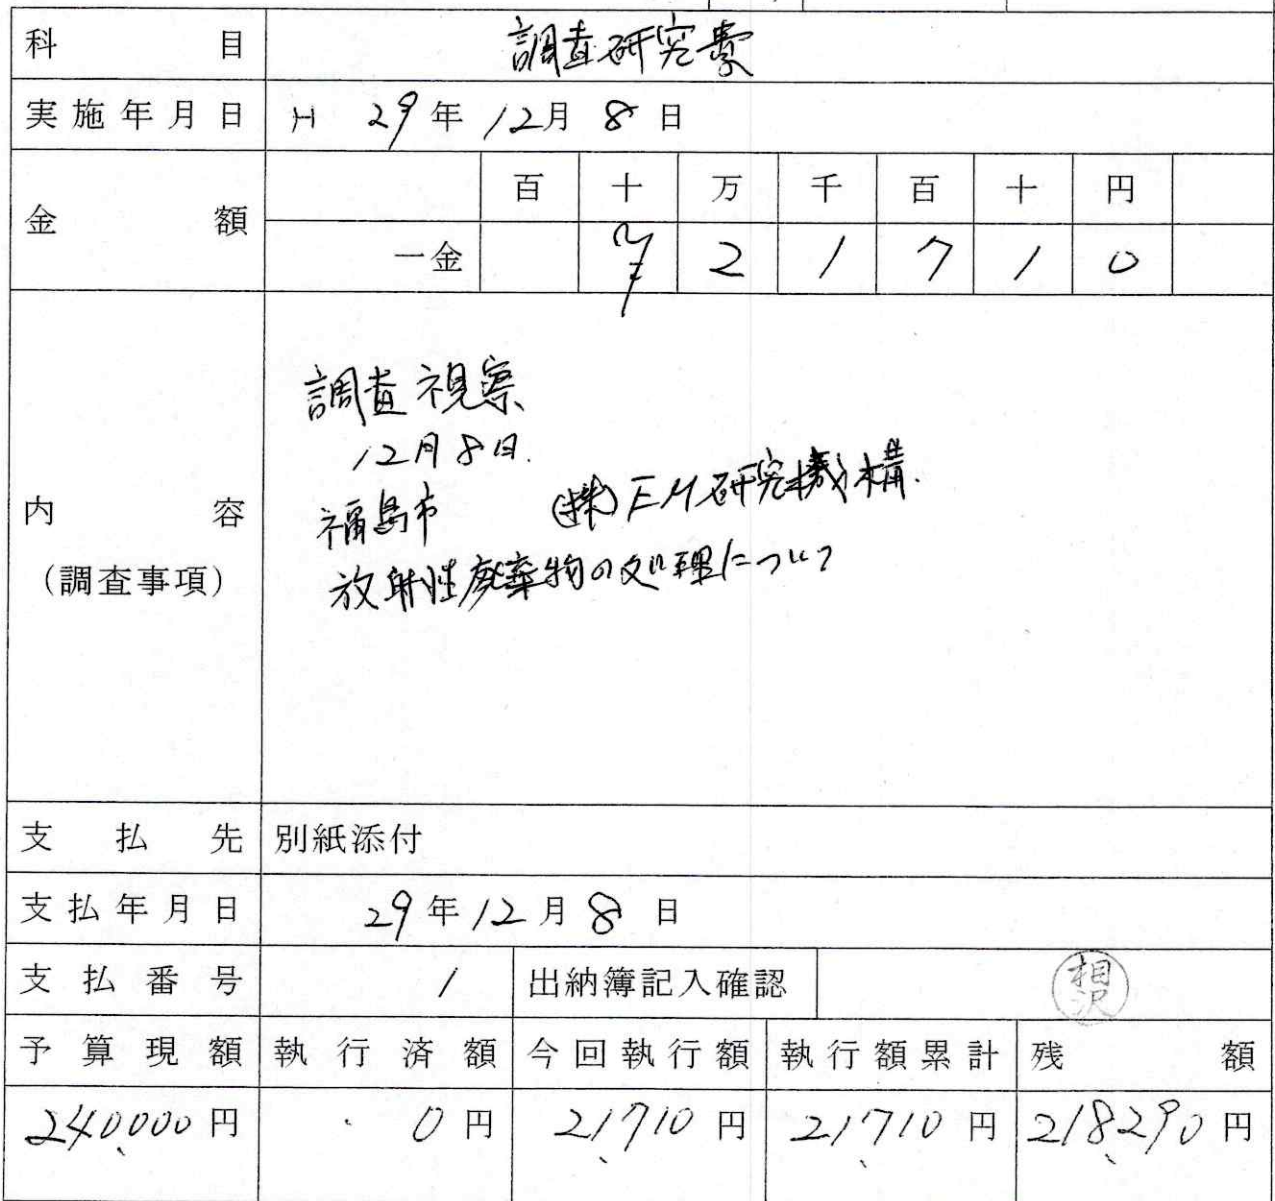 科目 調査研究費
実施年月日 H 29年 12月 8日
百 十 万 千 百 十 円
金額 一金 ¥ 2 1 7 1 0
調査視察
12月8日.
福島市 (株)EM研究機構.
放射性廃棄物の処理について
内容
(調査事項)
支払先 別紙添付
支払年月日 29年12月8日
支払番号 1 出納簿記入確認 相沢
予算現額 執行済額 今回執行額 執行額累計 残額
240000円 0円 21710円 21710円 218290円